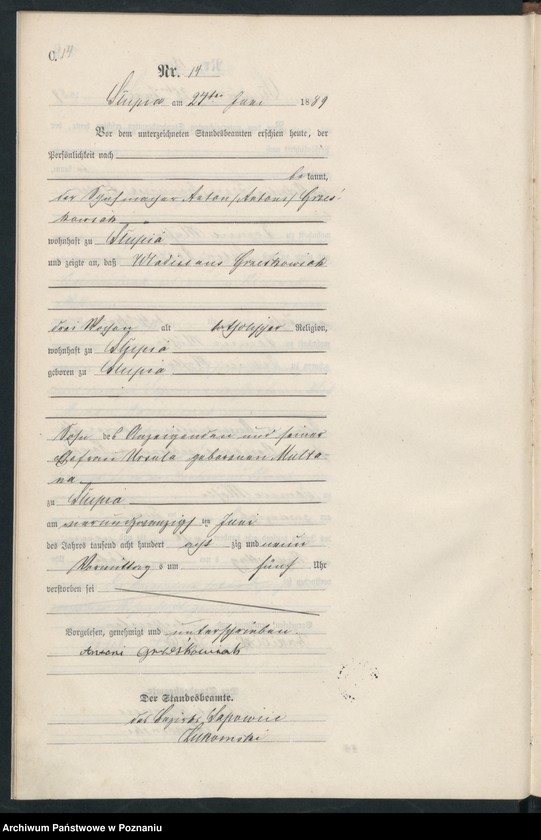 C. 14
Nr. 14
Slupia am 27ten Juni 1889
Vor dem unterzeichneten Standesbeamten erschien heute, der
Persönlichkeit nach
bekannt,
der Anton (Antoni) Grześ-
kowiak
wohnhaft zu Slupia
und zeigte an, daß Wladislaus Grzeskowiak
drei Wochen alt katholischer Religion,
wohnhaft zu Slupia
geboren zu Slupia
Sohn des Anzeigenden und seiner
Ehefrau Ursula geborenen Multa-
na
zu Slupia
am neunundzwanzigsten Juni
des Jahres tausend acht hundert achtzig und neun
Vormittags um fünf Uhr
verstorben sei
Vorgelesen, genehmigt und unterschrieben
Antoni Grześkowiak
Der Standesbeamte.
des Bezirks
Archiwum Państwowe w Poznaniu